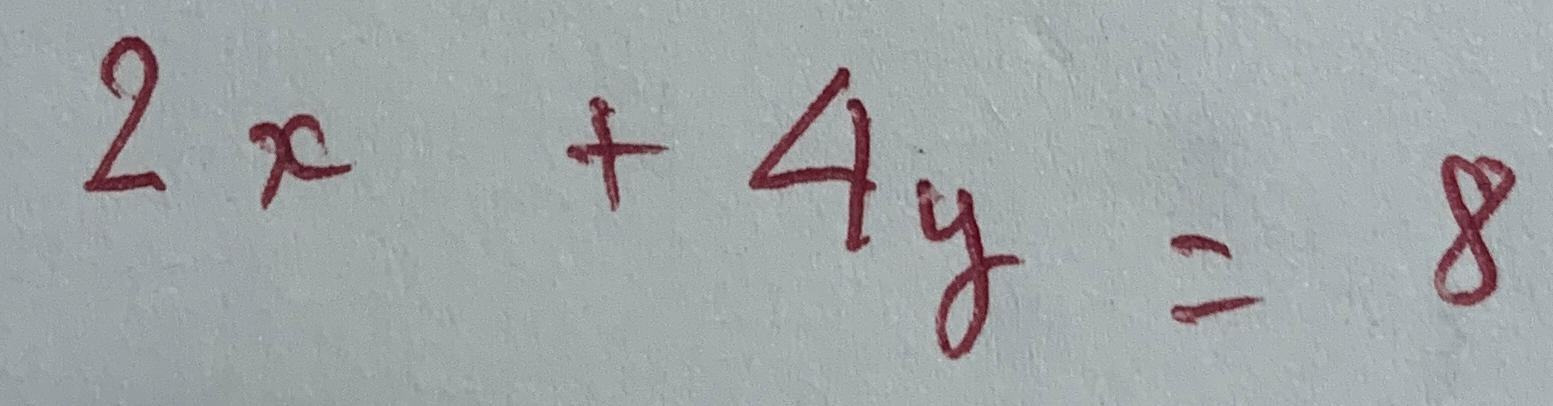 2x + 4y = 8